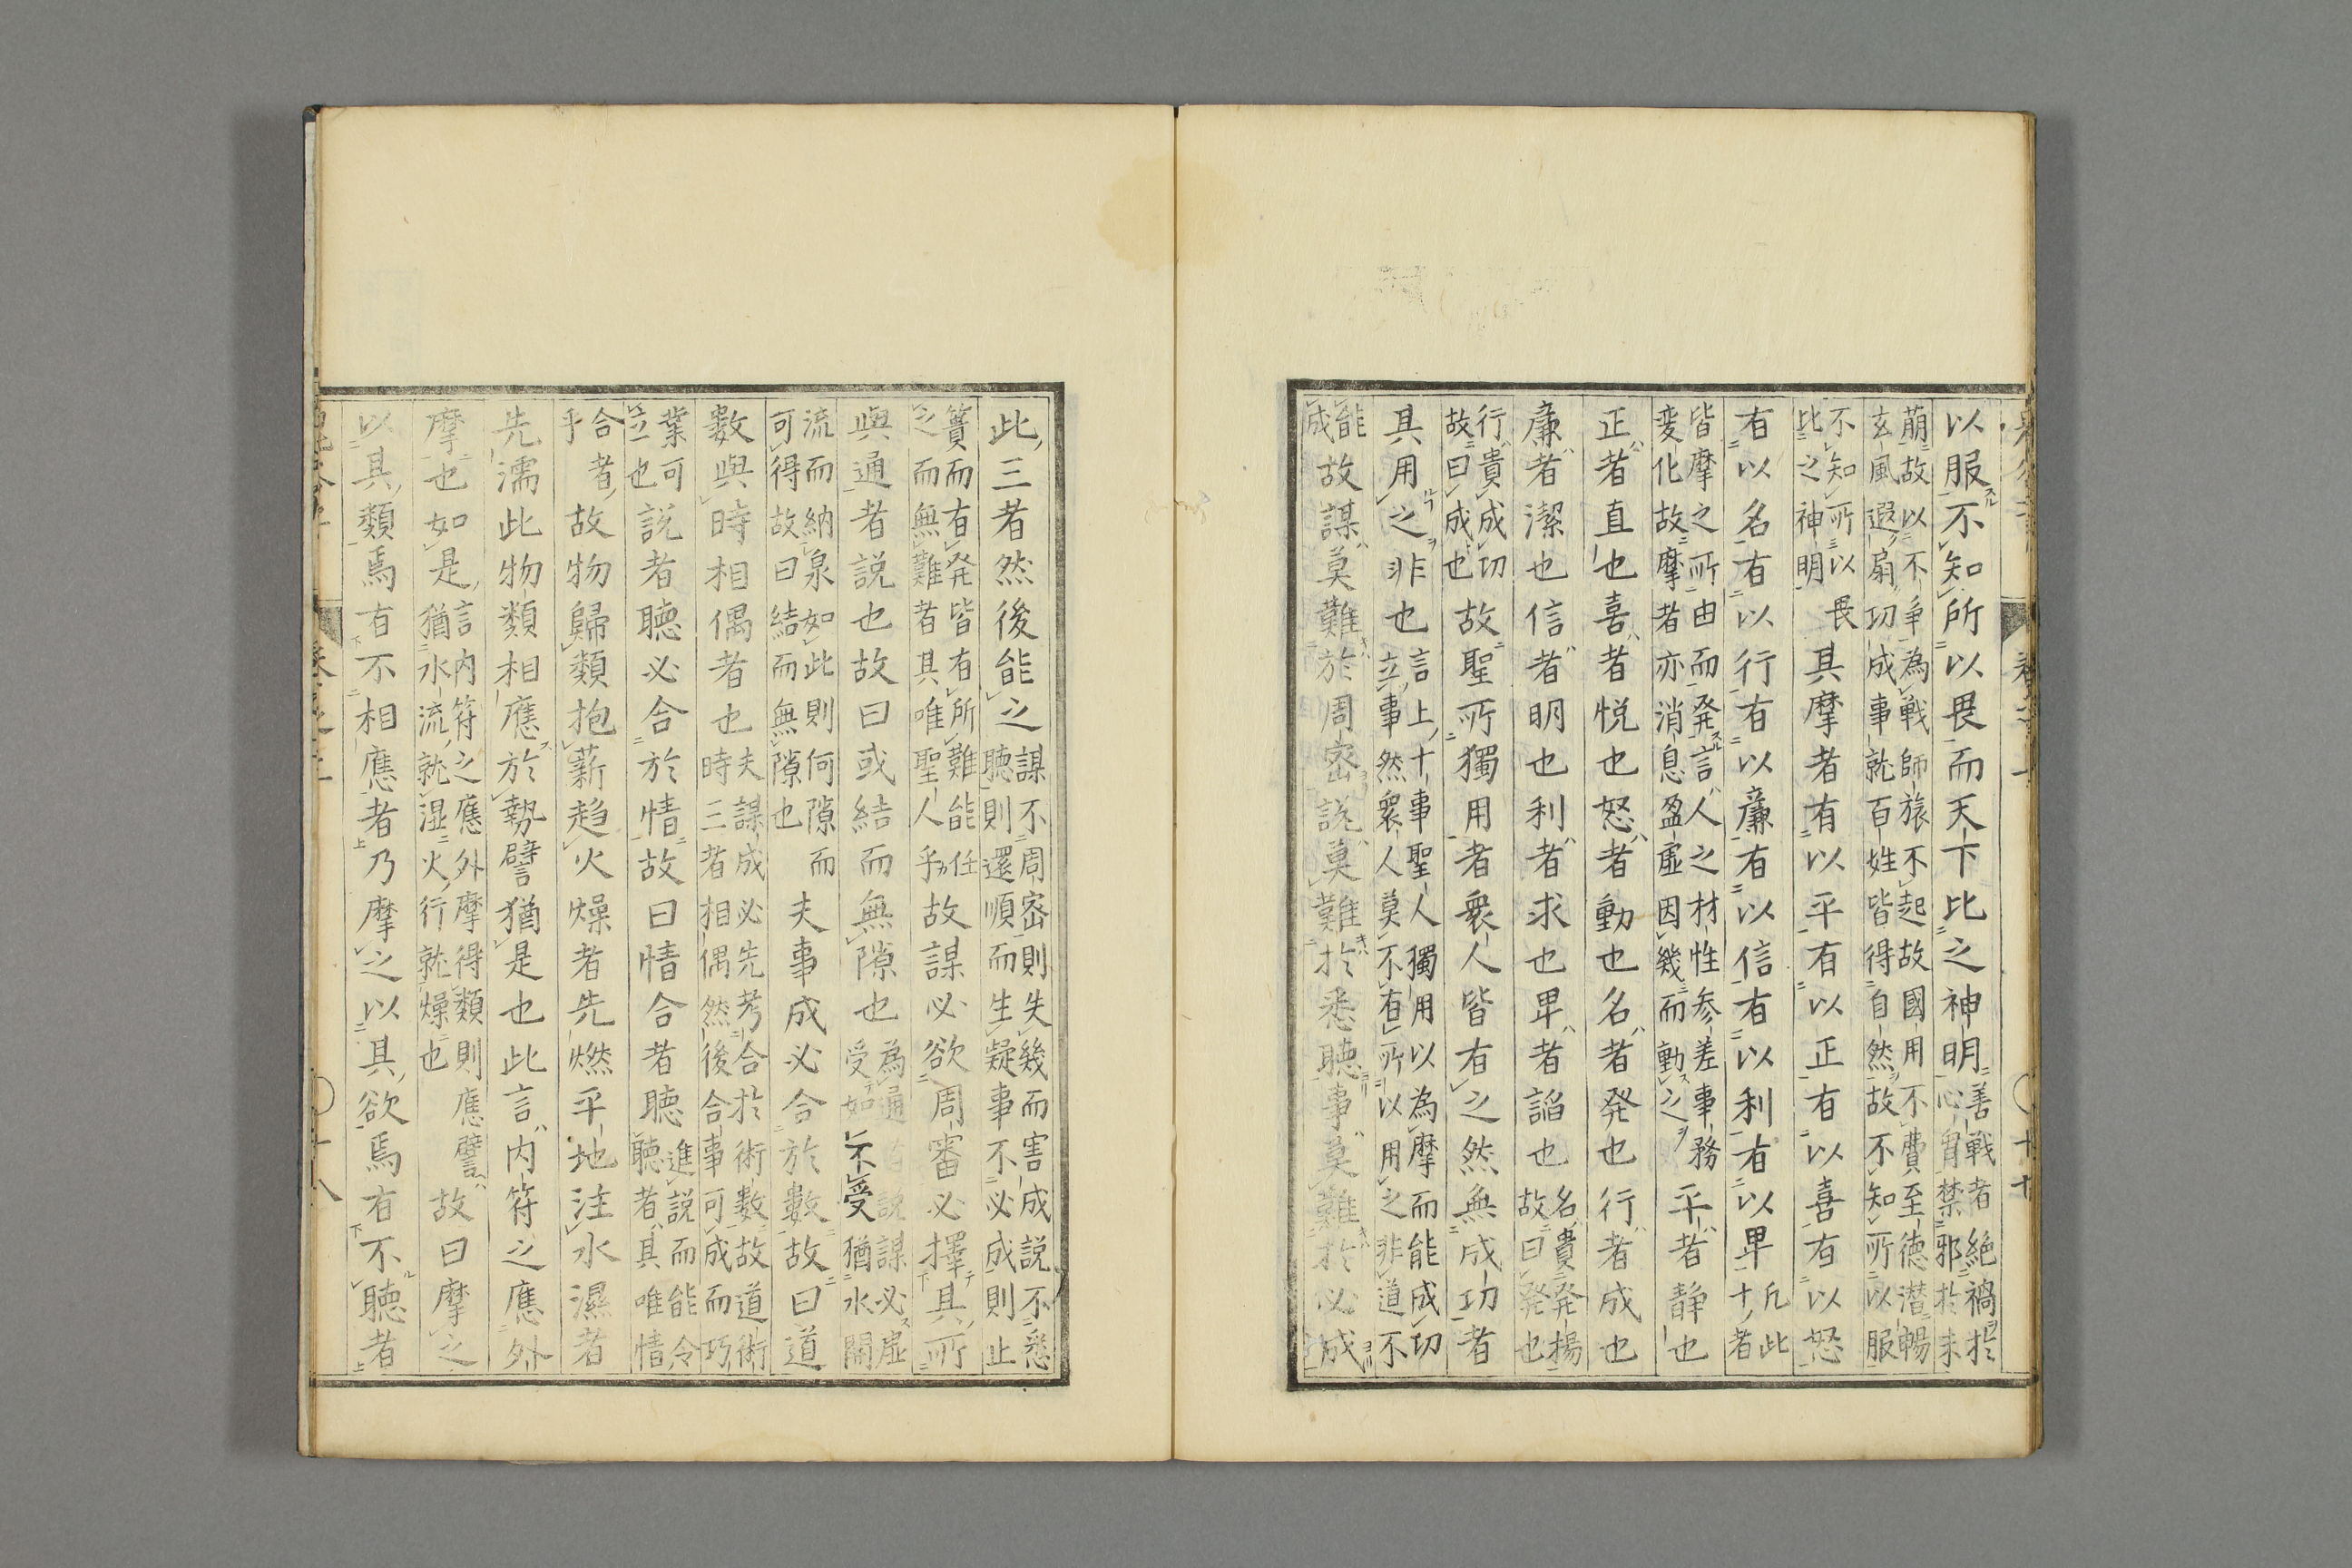 以服不知所以畏而天下比之神明善戰者絶禍於
心胷禁邪於未
萠故以不争為戰師旅不起故國用不費至德潜暢
玄風遐扇功成事就百姓皆得自然故不知所以服
不知所以畏
比之神明其摩者有以平有以正有以喜有以怒
有以名有以行有以廉有以信有以利有以卑凡此
十者
皆摩之所由而発言人之材性参差事務
変化故摩者亦消息盈虚因幾而動之平者静也
正者直也喜者悦也怒者動也名者発也行者成也
廉者潔也信者明也利者求也卑者諂也名貴発揚
故曰発也
行貴成功
故曰成也故聖所獨用者衆人皆有之然無成功者
其用之非也言上十事聖人獨用以為摩而能成功
立事然衆人莫不有所以用之非道不
能
成故謀莫難於周密説莫難於悉聴事莫難於必成
此三者然後能之謀不周密則失幾而害成説不悉
聴則還順而生疑事不必成則止
簣而有発皆有所難能任
之而無難者其唯聖人乎故謀必欲周審必擇其所
與通者説也故曰或結而無隙也為通説謀必虚
受如不受猶水開
流而納泉如此則何隙而
可得故曰結而無隙也夫事成必合於數故曰道
數與時相偶者也夫謀成必先考合於術數故道術
時三者相偶然後合事可成而功
業可
立也説者聴必合於情故曰情合者聴進説而能令
聴者其唯情
合者
乎故物歸類抱薪趨火燥者先燃平地注水濕者
先濡此物類相應於勢譬猶是也此言内符之應外
摩也如是言内符之應外摩得類則應譬
猶水流就湿火行就燥也故曰摩之
以其類焉有不相應者乃摩之以其欲焉有不聴者
十八